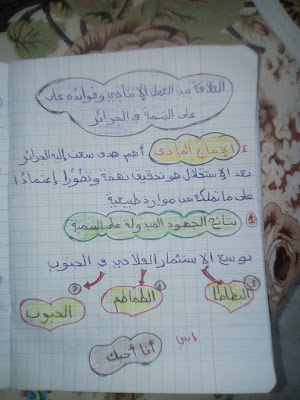 العلاقة بين العمل الإنتاجي وفوائده على
على التنمية في الجزائر
1 الإنتاج المادي أهم هدف سعت إليه الجزائر
بعد الاستقلال هو تحقيق نهضة وتطورا إعتمادا
على ما تملكه من موارد طبيعية
نتائج الجهود المبذولة على التنمية
توسع الاستثمار الفلاحي في الحبوب
البطاطا
الطماطم
الحبوب
أنا أحبك